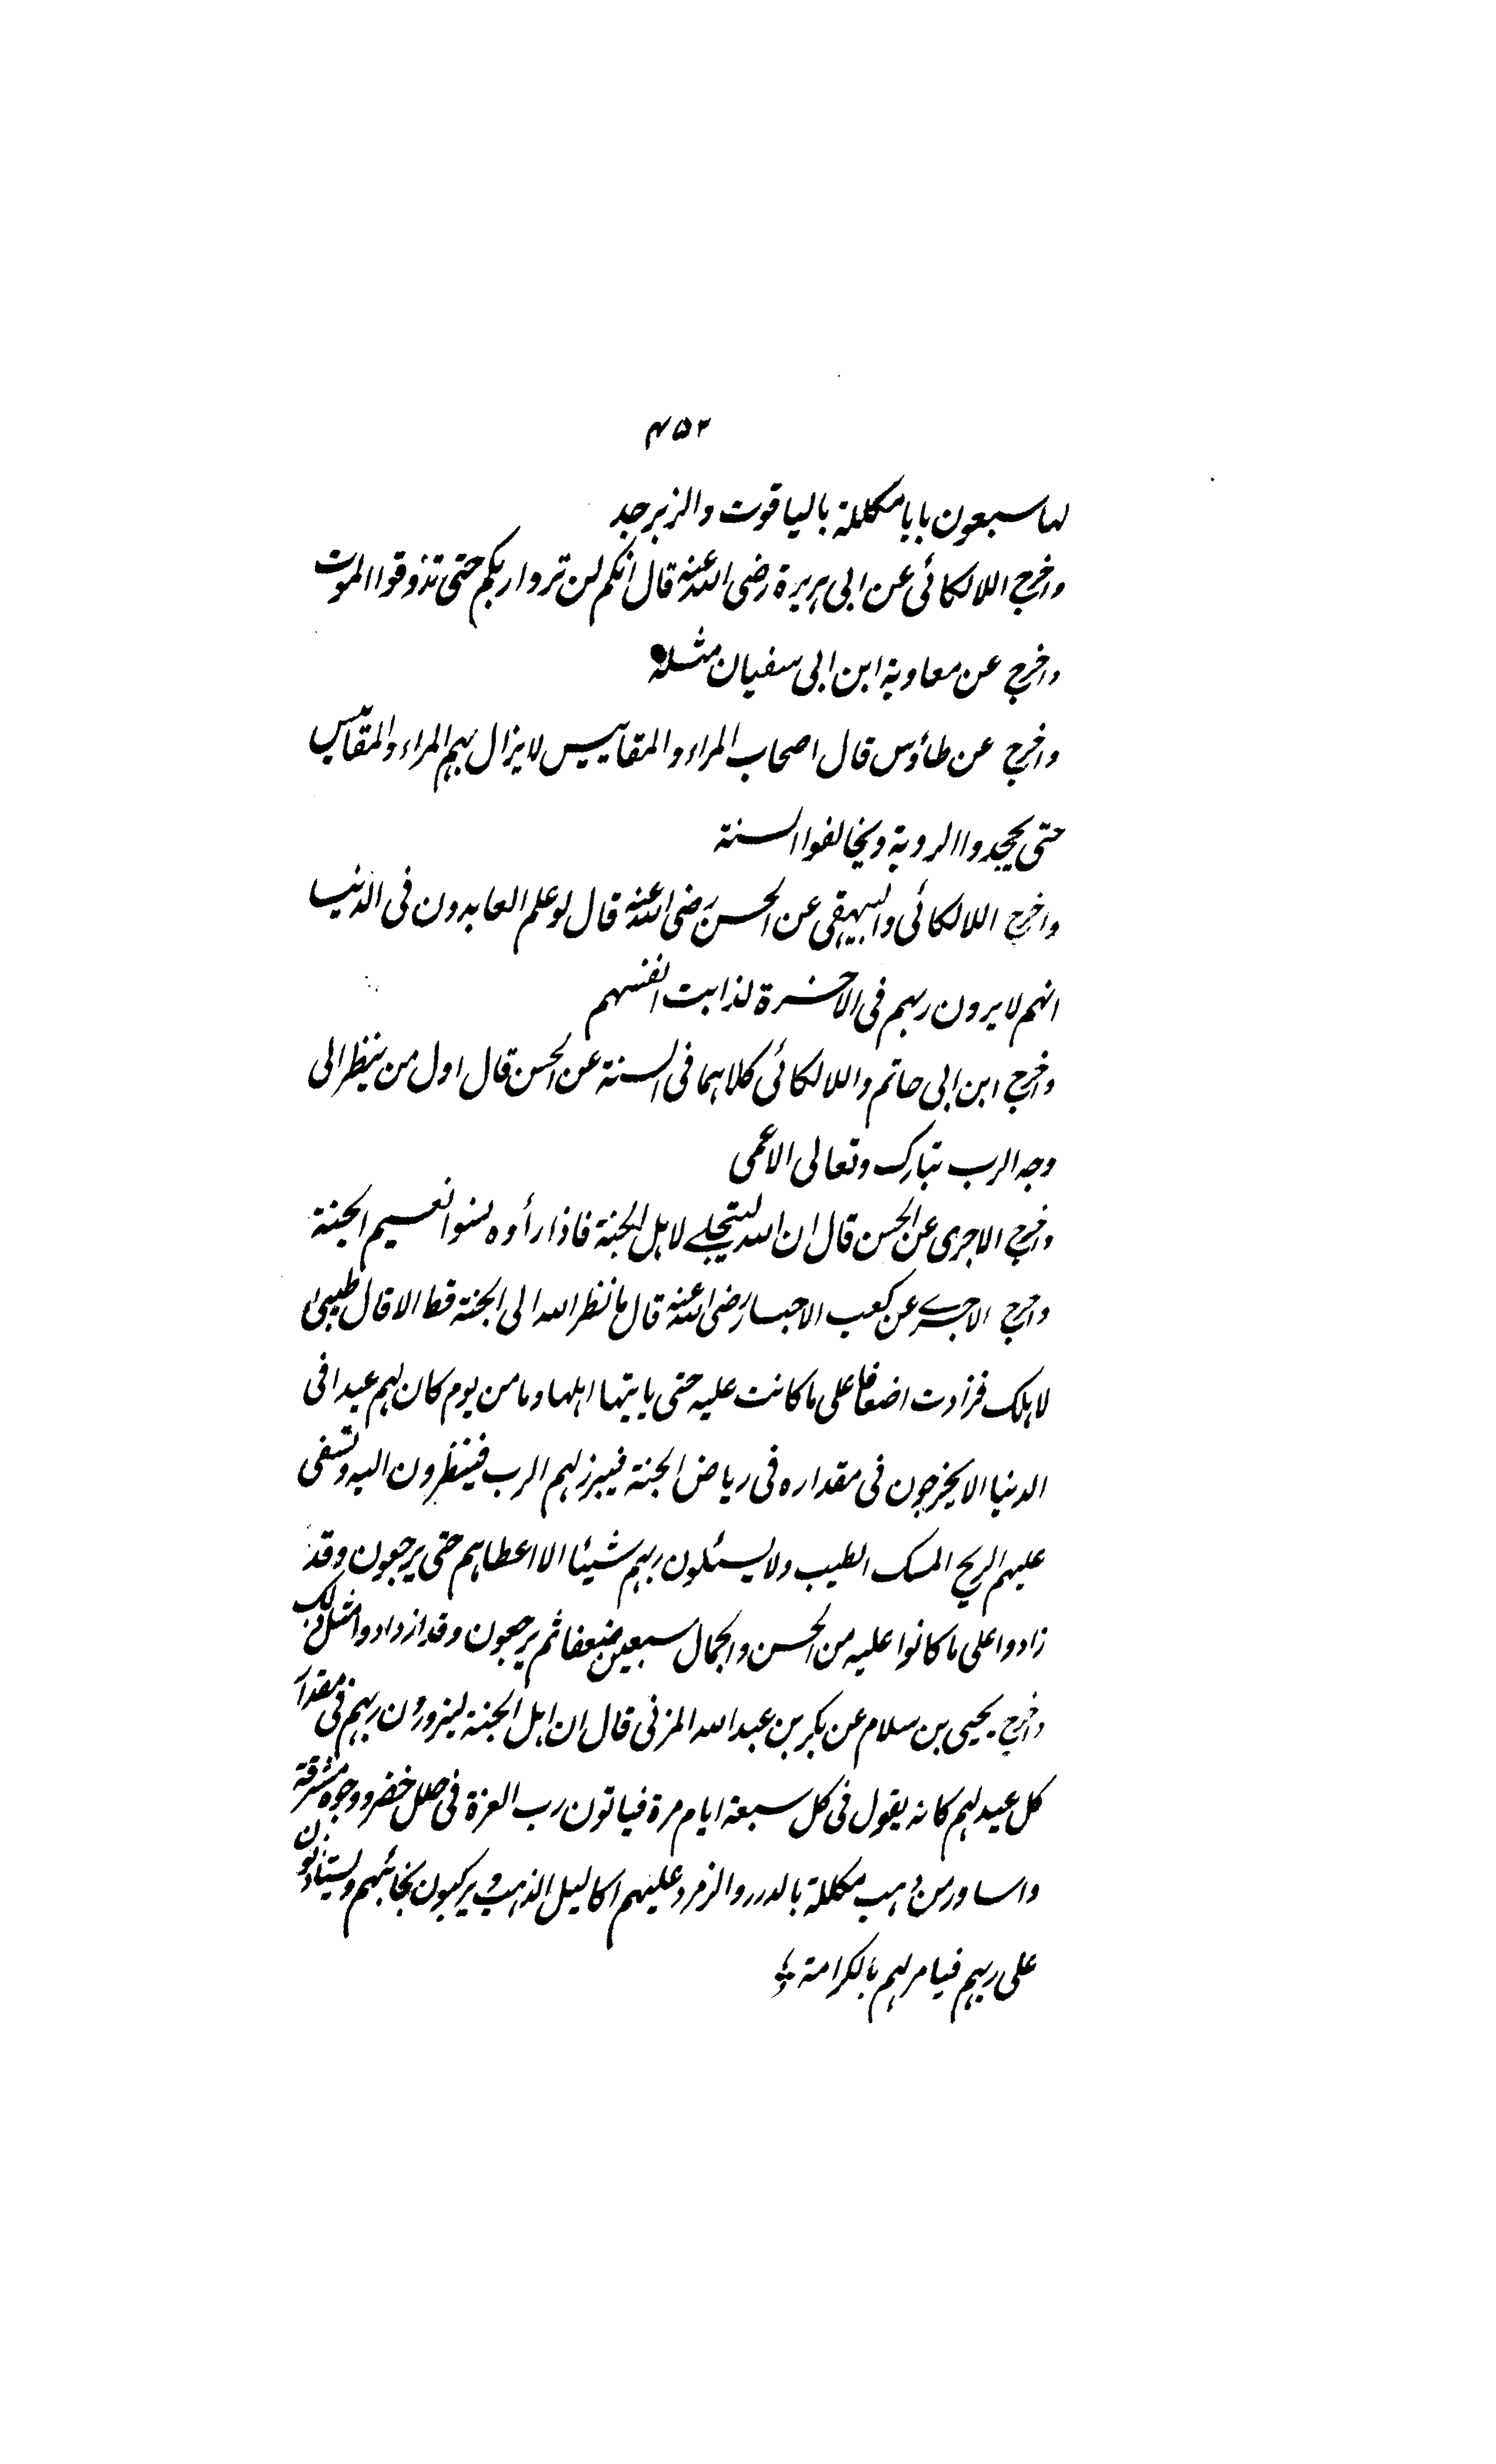 ۴۵۳
لها سبعون بابا مكللة بالياقوت والزبرجد
واخرج اللالكائى عن ابى هريرة رضى الله عنه قال انكم لن تروا ربكم حتى تذوقوا الموت
واخرج عن معاوية ابن ابى سفيان مثله
واخرج عن طاؤس قال اصحاب المراء والمقاييس لايزال بهم المراء والمقاييس
حتى يجحدوا الروية ويخالفوا السنة
واخرج اللالكائى والبيهقى عن الحسن رضى الله عنه قال لو علم العابدون فى الدنيا
انهم لايرون ربهم فى الاخرة لذابت انفسهم
واخرج ابن ابى حاتم واللالكائى كلاهما فى السنة عن الحسن قال اول من ينظر الى
وجه الرب تبارك وتعالى الاعمى
واخرج الاجرى عن الحسن قال ان الله ليتجلے لاهل الجنة فاذا رأوه نسوا نعيم الجنة
واخرج الاجرے عن كعب الاحبار رضى الله عنه قال ما نظر الله الى الجنة قط الا قال طيبى
لاهلك فزادت اضعافا على ما كانت عليه حتى ياتيها اهلها وما من يوم كان لهم عيدا فى
الدنيا الا يخرجون فى مقداره فى رياض الجنة فيبرز لهم الرب فينظرون اليه وتسفى
عليهم الريح المسك الطيب ولا يسئلون ربهم شيئا الا اعطاهم حتى يرجعون وقد
زادوا على ما كانوا عليه من الحسن والجمال سبعين ضعفا ثم يرجعون وقد ازدادوا مثل ذلك
واخرج يحيى بن سلام عن بكر بن عبد الله المزنى قال ان اهل الجنة ليزورون ربهم فى مقدار
كل عيد لهم كانه يقول فى كل سبعة ايام مرة فياتون رب العزة فى حلل خضر ووجوه مشرقة
واساور من ذهب مكللة بالدرر والزمرد عليهم اكاليل الذهب ويركبون نجائبهم ويستاذنون
على ربهم فيامر لهم بالكرامة